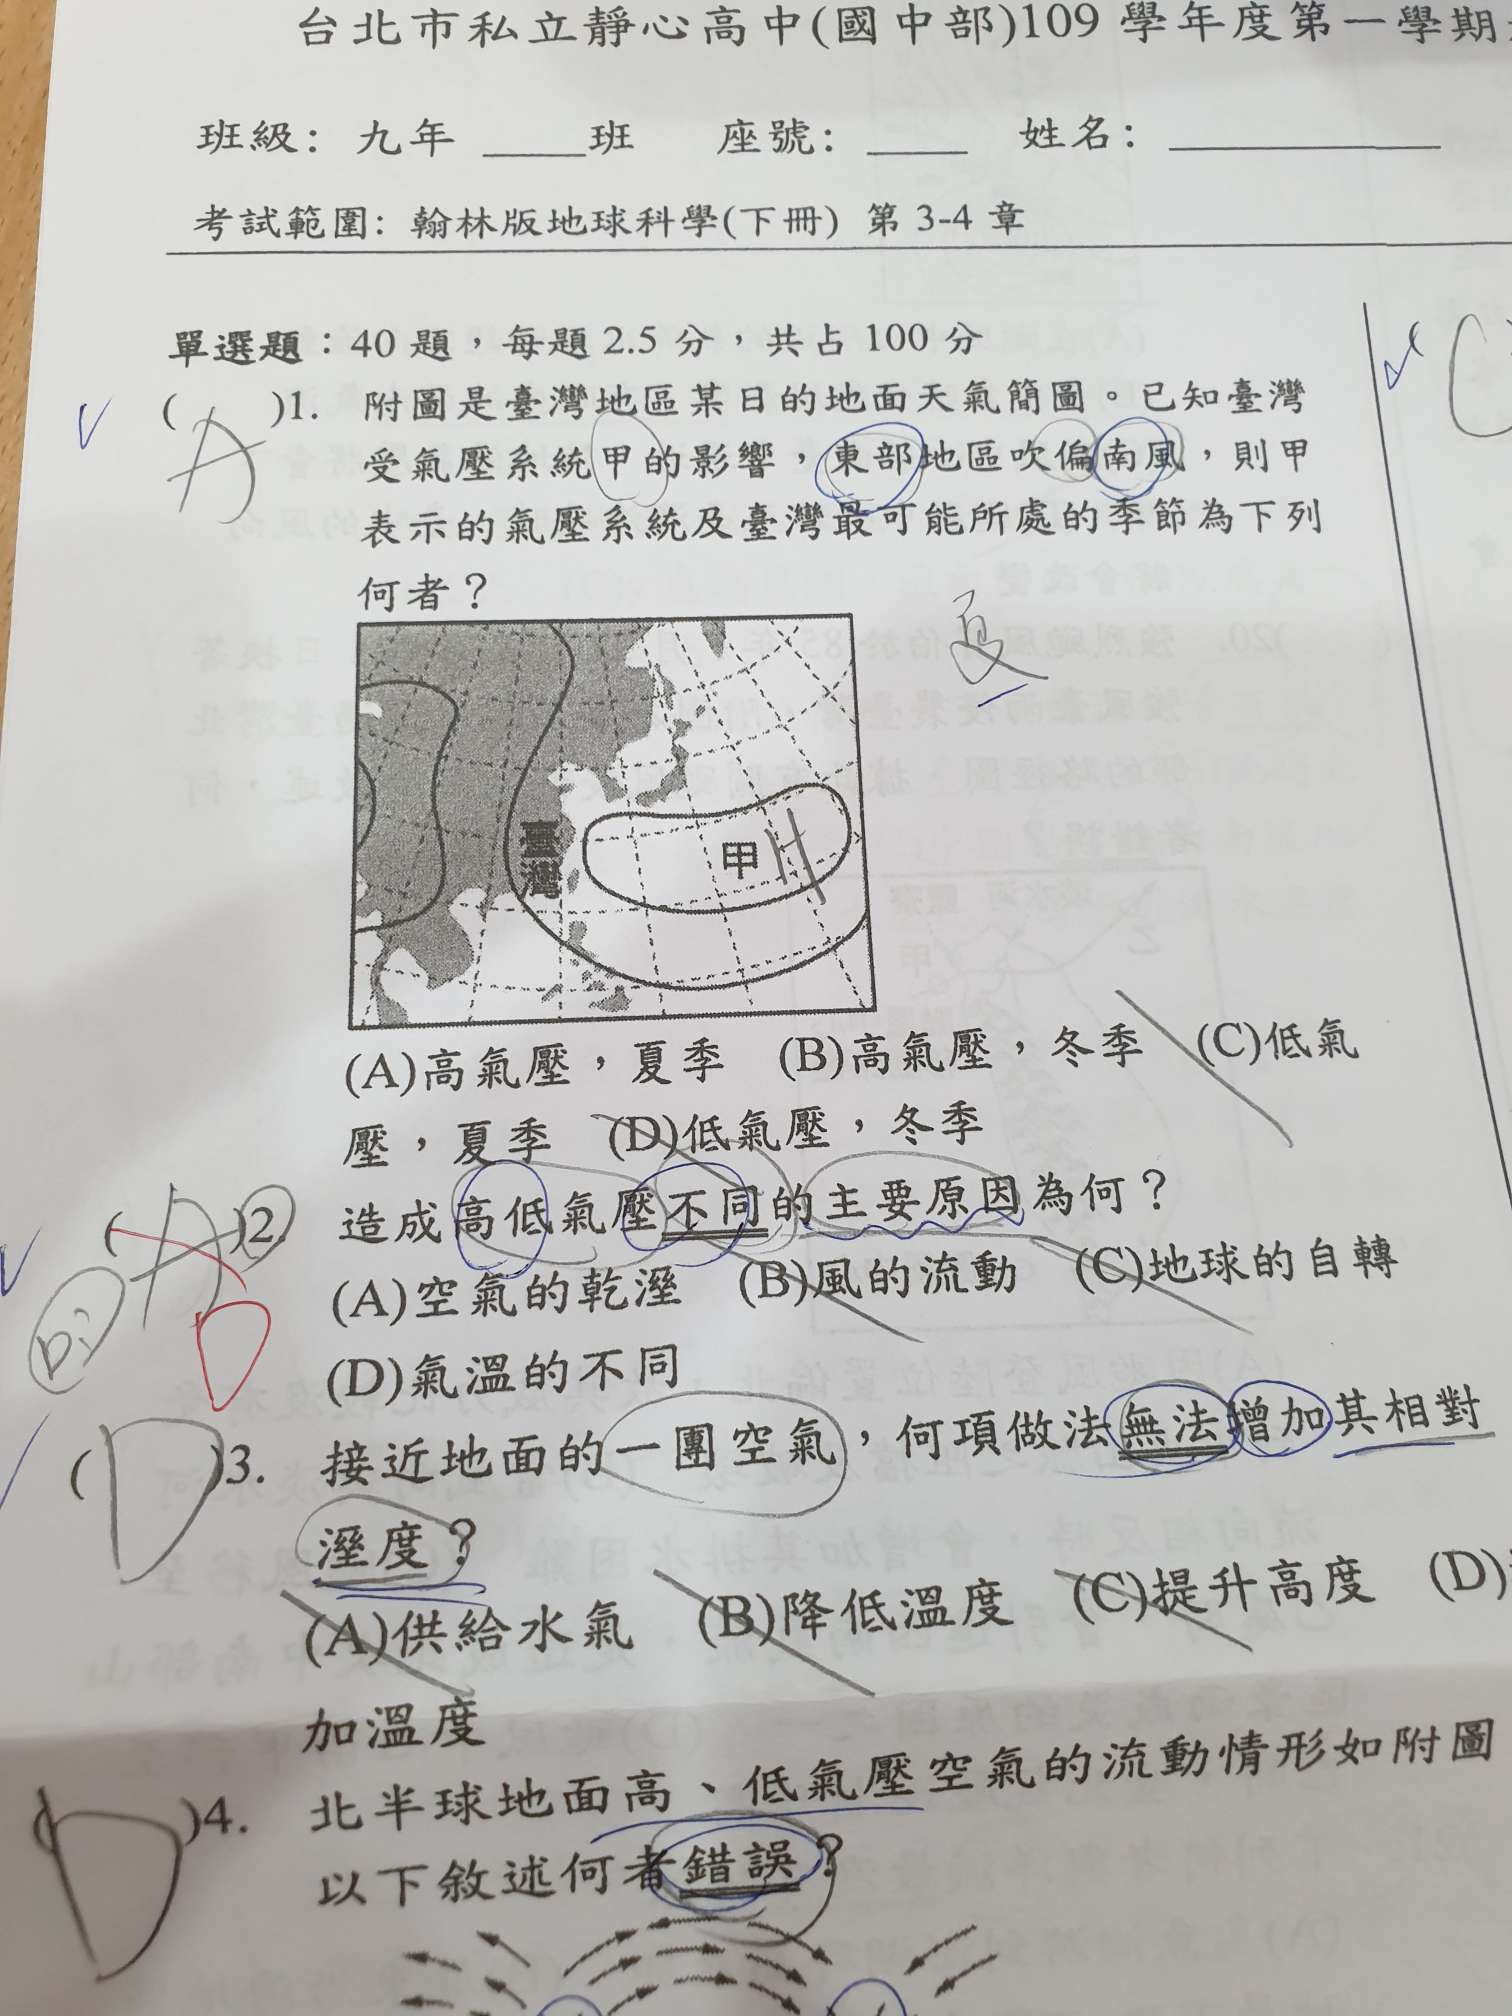 台北市私立靜心高中(國中部)109 學年度第一學期
班級: 九年 ____班 座號: ____ 姓名: ____________
考試範圍: 翰林版地球科學(下冊) 第 3-4 章
單選題：40 題，每題 2.5 分，共占 100 分
( A )1. 附圖是臺灣地區某日的地面天氣簡圖。已知臺灣
受氣壓系統甲的影響，東部地區吹偏南風，則甲
表示的氣壓系統及臺灣最可能所處的季節為下列
何者？
夏
臺灣
甲
(A)高氣壓，夏季 (B)高氣壓，冬季 (C)低氣
壓，夏季 (D)低氣壓，冬季
( A )2. 造成高低氣壓不同的主要原因為何？
D
(A)空氣的乾溼 (B)風的流動 (C)地球的自轉
(D)氣溫的不同
( D )3. 接近地面的一團空氣，何項做法無法增加其相對
溼度？
(A)供給水氣 (B)降低溫度 (C)提升高度 (D)
加溫度
( D )4. 北半球地面高、低氣壓空氣的流動情形如附圖
以下敘述何者錯誤？